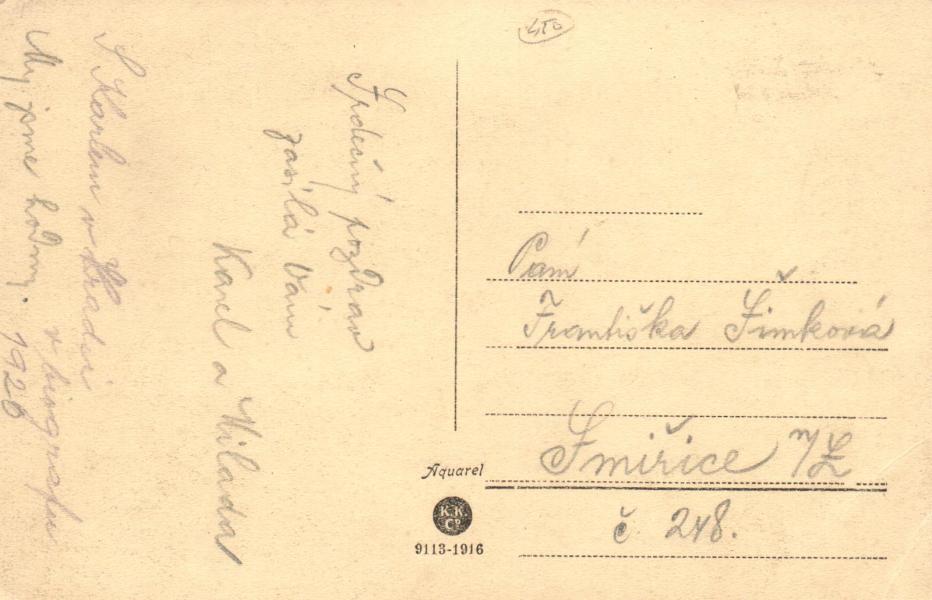 Srdečný pozdrav
zasílá Vám
Karel a Milada
S Karlem v Hradci
v biografu
My jsme hodný. 1926
Paní
Františka Šimková
Smiřice n/L
č 248.
Aquarel
K.K.
Co
9113-1916